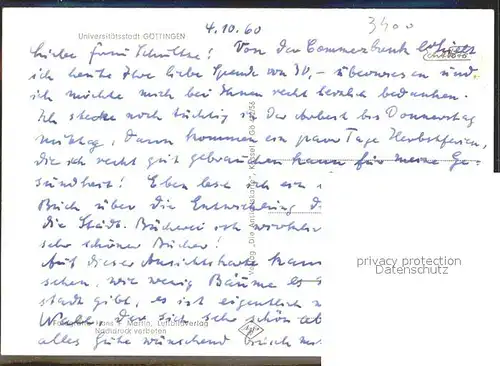 Universitätsstadt GÖTTINGEN
4.10.60
3400
Liebe Frau Schultze! Von der Commerzbank erhielt
ich heute Ihre liebe Spende von 30,- überwiesen und
ich möchte mich bei Ihnen recht herzlich bedanken.
Ich stecke noch tüchtig in der Arbeit bis Donnerstag
mittag, dann kommen ein paar Tage Herbstferien,
die ich recht gut gebrauchen kann für meine Ge-
sundheit! Eben lese ich ein
Buch über die Entwicklung
die Städt. Bücherei
sehr schöner Bücher!
Auf dieser Ansichtskarte kann
sehen, wie wenig Bäume es
stadt gibt, es ist eigentlich
Walle, der sich sehr schön
alles Gute wünschend
Verlag „Die Ansichtskarte"
Hans F. Martin, Luftbildverlag
Nachdruck verboten
Agfa
privacy protection
Datenschutz